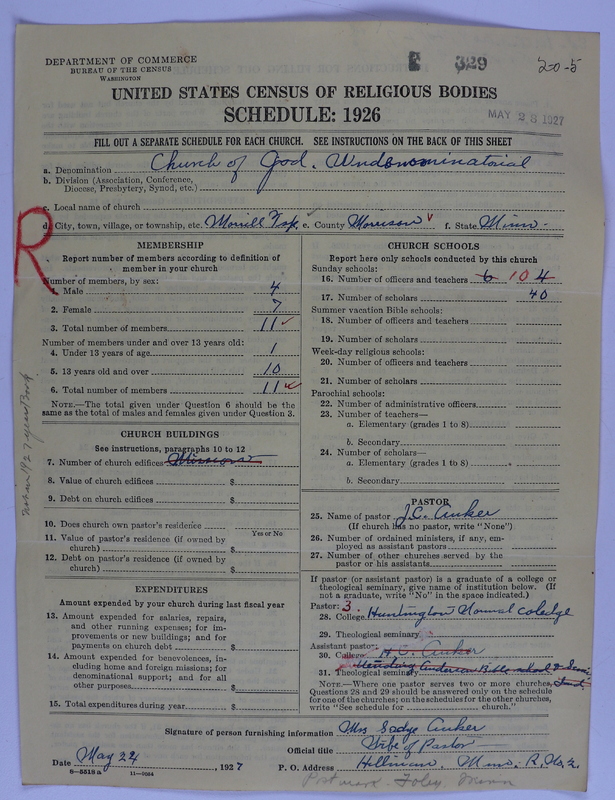 DEPARTMENT OF COMMERCE
BUREAU OF THE CENSUS
WASHINGTON
E 329
20-5
UNITED STATES CENSUS OF RELIGIOUS BODIES
SCHEDULE: 1926
MAY 28 1927
FILL OUT A SEPARATE SCHEDULE FOR EACH CHURCH. SEE INSTRUCTIONS ON THE BACK OF THIS SHEET
a. Denomination Church of God. Undenominatorial
b. Division (Association, Conference,
Diocese, Presbytery, Synod, etc.)
c. Local name of church
d. City, town, village, or township, etc. Morrill Twp. e. County Morrison f. State Minn.
R
MEMBERSHIP
Report number of members according to definition of
member in your church
Number of members, by sex:
1. Male 4
2. Female 7
3. Total number of members 11
Number of members under and over 13 years old:
4. Under 13 years of age 1
5. 13 years old and over 10
6. Total number of members 11
NOTE.—The total given under Question 6 should be the
same as the total of males and females given under Question 3.
CHURCH BUILDINGS
See instructions, paragraphs 10 to 12
7. Number of church edifices
8. Value of church edifices $
9. Debt on church edifices $
10. Does church own pastor's residence
Yes or No
11. Value of pastor's residence (if owned by
church) $
12. Debt on pastor's residence (if owned by
church) $
EXPENDITURES
Amount expended by your church during last fiscal year
13. Amount expended for salaries, repairs,
and other running expenses; for im-
provements or new buildings; and for
payments on church debt $
14. Amount expended for benevolences, in-
cluding home and foreign missions; for
denominational support; and for all
other purposes $
15. Total expenditures during year $
CHURCH SCHOOLS
Report here only schools conducted by this church
Sunday schools:
16. Number of officers and teachers 6 10 4
17. Number of scholars 40
Summer vacation Bible schools:
18. Number of officers and teachers
19. Number of scholars
Week-day religious schools:
20. Number of officers and teachers
21. Number of scholars
Parochial schools:
22. Number of administrative officers
23. Number of teachers—
a. Elementary (grades 1 to 8)
b. Secondary
24. Number of scholars—
a. Elementary (grades 1 to 8)
b. Secondary
PASTOR
25. Name of pastor J.C. Anker
(If church has no pastor, write "None")
26. Number of ordained ministers, if any, em-
ployed as assistant pastors
27. Number of other churches served by the
pastor or his assistants
If pastor (or assistant pastor) is a graduate of a college or
theological seminary, give name of institution below. (If
not a graduate, write "No" in the space indicated.)
Pastor: 3
28. College Huntington Normal coledge
29. Theological seminary
Assistant pastor:
30. College H. C. Anker
31. Theological seminary Anderson Bible school &
NOTE.—Where one pastor serves two or more churches,
Questions 28 and 29 should be answered only on the schedule
for one of the churches; on the schedules for the other churches,
write "See schedule for church."
Signature of person furnishing information Mrs Sadye Anker
Official title Wife of Pastor
Date May 22, 1927 P. O. Address Hillman, Minn. R. No. 2.
8—5519a 11—9034
Post mark Foley Minn